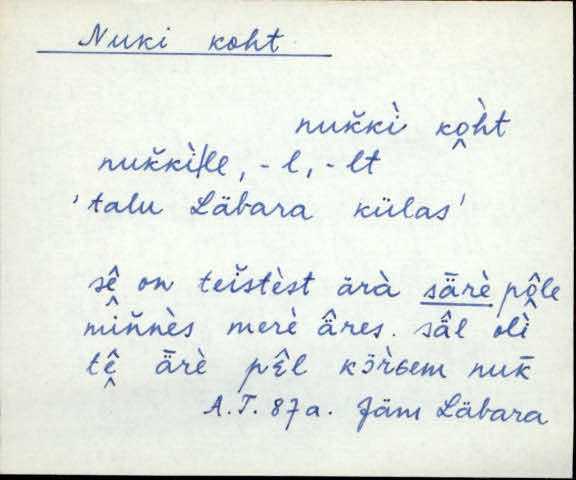 Nuki koht
nuk̆kì ko̭h̀t
nuk̆kì/le, -l, -lt
'talu Läbara külas'
sê on teis̆tèst ärà sǟrè pô̭le
mî̭n̆nès merè âres. sâ̈l olì
tḙ̂ ǟrè pêl kɔ̈r̀ɢem nuk̄
A.T. 87a. Jäm Läbara